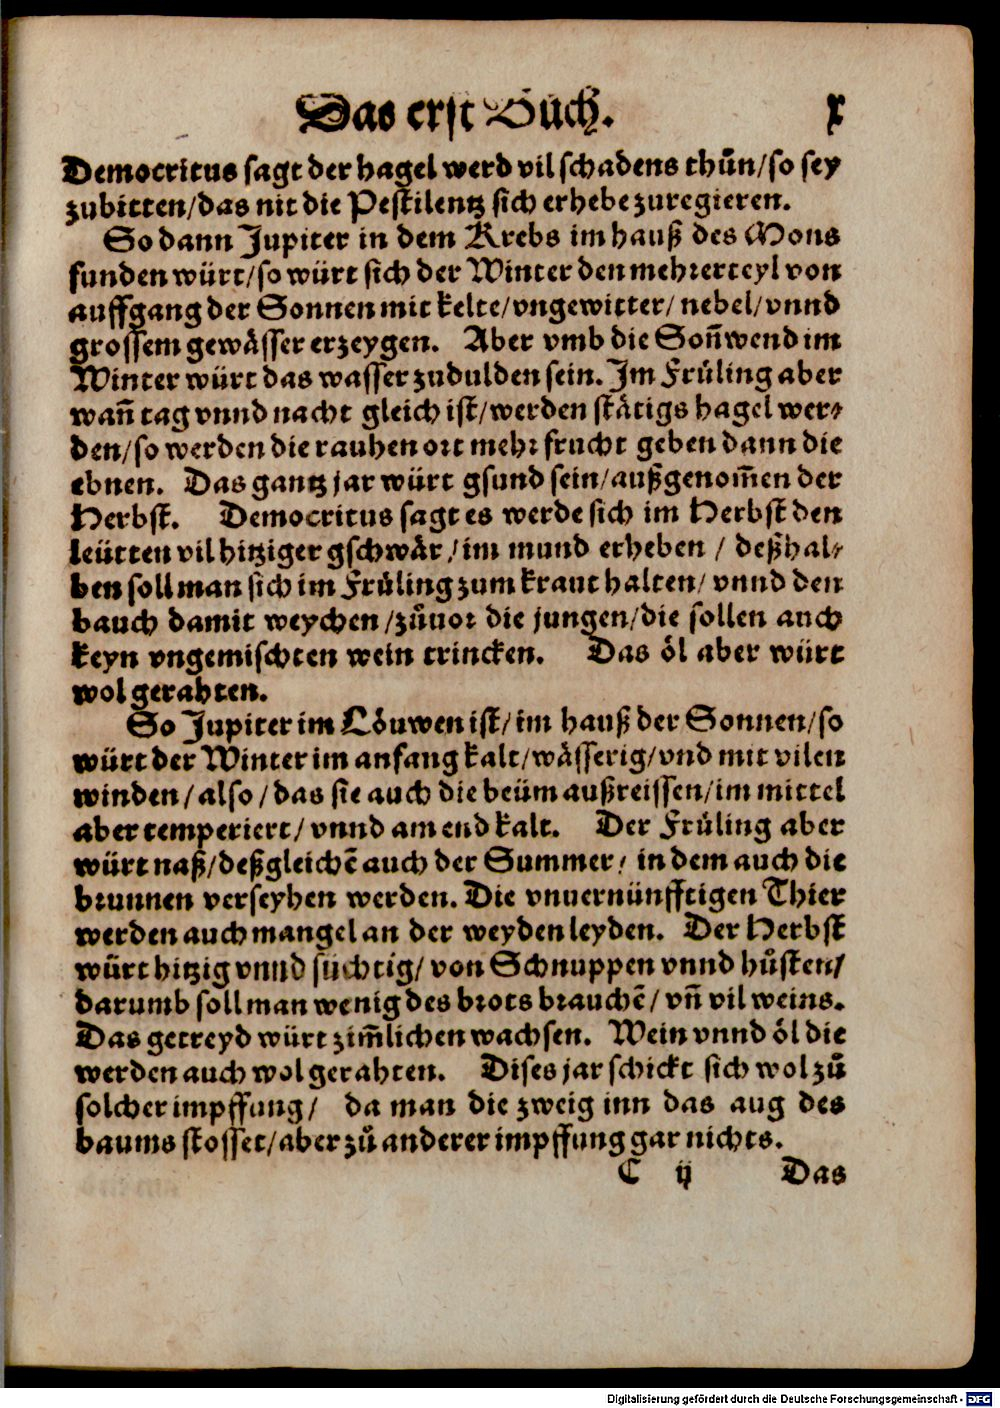 Das erst Bůch. x
Democritus sagt der hagel werd vil schadens thůn/so sey
zubitten/das nit die Pestilentz sich erhebe zuregieren.
So dann Jupiter in dem Krebs im hauß des Mons
funden würt/so würt sich der Winter den mehrerteyl von
auffgang der Sonnen mit kelte/vngewitter/nebel/vnnd
grossem gewässer erzeygen. Aber vmb die Soñwend im
Winter würt das wasser zudulden sein. Im Früling aber
wañ tag vnnd nacht gleich ist/werden stätigs hagel wer-
den/so werden die rauhen ort mehr frucht geben dann die
ebnen. Das gantz jar würt gsund sein/außgenom̃en der
Herbst. Democritus sagt es werde sich im Herbst den
leütten vil hitziger gschwär/im mund erheben/deßhal-
ben soll man sich im Früling zum kraut halten/vnnd den
bauch damit weychen/zůuor die jungen/die sollen auch
keyn vngemischten wein trincken. Das öl aber würt
wol gerahten.
So Jupiter im Löuwen ist/im hauß der Sonnen/so
würt der Winter im anfang kalt/wässerig/vnd mit vilen
winden/also/das sie auch die beüm außreissen/im mittel
aber temperiert/vnnd am end kalt. Der Früling aber
würt naß/deßgleichẽ auch der Summer/in dem auch die
brunnen verseyhen werden. Die vnuernünfftigen Thier
werden auch mangel an der weyden leyden. Der Herbst
würt hitzig vnnd süchtig/von Schnuppen vnnd hůsten/
darumb soll man wenig des brots brauchẽ/vñ vil weins.
Das getreyd würt zim̃lichen wachsen. Wein vnnd öl die
werden auch wol gerahten. Dises jar schickt sich wol zů
solcher impffung/ da man die zweig inn das aug des
baums stosset/aber zů anderer impffung gar nichts.
C ij Das
Digitalisierung gefördert durch die Deutsche Forschungsgemeinschaft - DFG